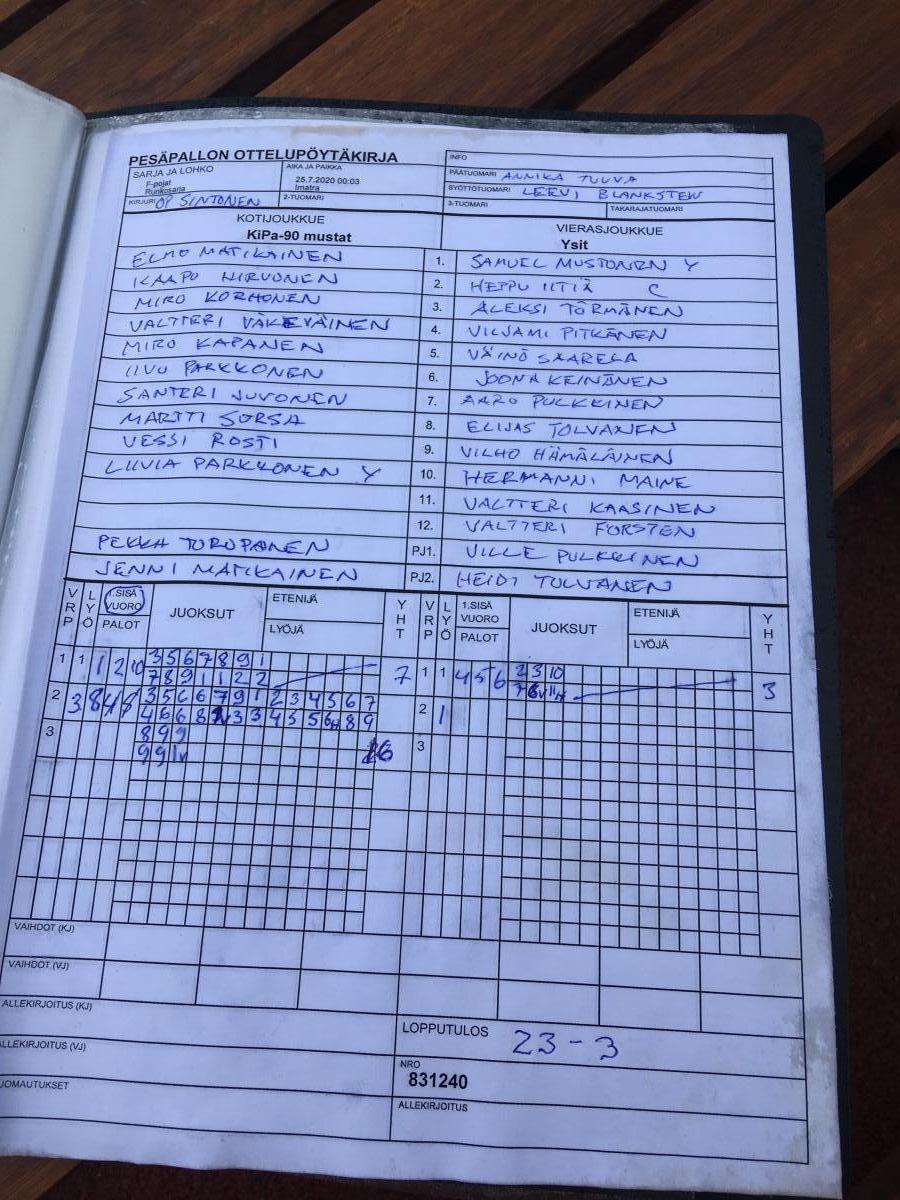 PESÄPALLON OTTELUPÖYTÄKIRJA
SARJA JA LOHKO
F-pojat
Runkosarja
AIKA JA PAIKKA
25.7.2020 00:03
Imatra
KIRJURI OP SINTONEN
2-TUOMARI
INFO
PÄÄTUOMARI ANNIKA TUUVA
SYÖTTÖTUOMARI
3-TUOMARI
TAKARAJATUOMARI
KOTIJOUKKUE
KiPa-90 mustat
VIERASJOUKKUE
Ysit
ELMO MATIKAINEN 1. SAMUEL MUSTONEN Y
KAAPO HIRVONEN 2. HEPPU IITIÄ C
MIRO KORHONEN 3. ALEKSI TÖRMÄNEN
VALTTERI VÄKEVÄINEN 4. VILJAMI PITKÄNEN
MIRO KAPANEN 5. VÄINÖ SAARELA
IIVO PARKKONEN 6. JOONA KEINÄNEN
SANTERI JUVONEN 7. AARO PULKKINEN
MARTTI SORSA 8. ELIJAS TOLVANEN
VESSI ROSTI 9. VILHO HÄMÄLÄINEN
LIIVIA PARKKONEN Y 10. HERMANNI MAINE
11. VALTTERI KAASINEN
12. VALTTERI FORSTEN
PEKKA TOROPAINEN PJ1. VILLE PULKKINEN
JENNI MATIKAINEN PJ2. HEIDI TOLVANEN
VRP LYÖ 1.SISÄ VUORO PALOT JUOKSUT ETENIJÄ LYÖJÄ YHT VRP LYÖ 1.SISÄ VUORO PALOT JUOKSUT ETENIJÄ LYÖJÄ YHT
1 1 1 2 10 3 5 6 7 8 9 1 7 1 1 4 5 6 2 3 10 3
7 8 9 1 1 2 2
2 3 8 3 5 6 6 7 9 1 2 3 4 5 6 7 2 1
3 8 9 9 16 3
VAIHDOT (KJ)
VAIHDOT (VJ)
ALLEKIRJOITUS (KJ)
ALLEKIRJOITUS (VJ)
LOPPUTULOS 23 - 3
NRO
831240
HUOMAUTUKSET
ALLEKIRJOITUS